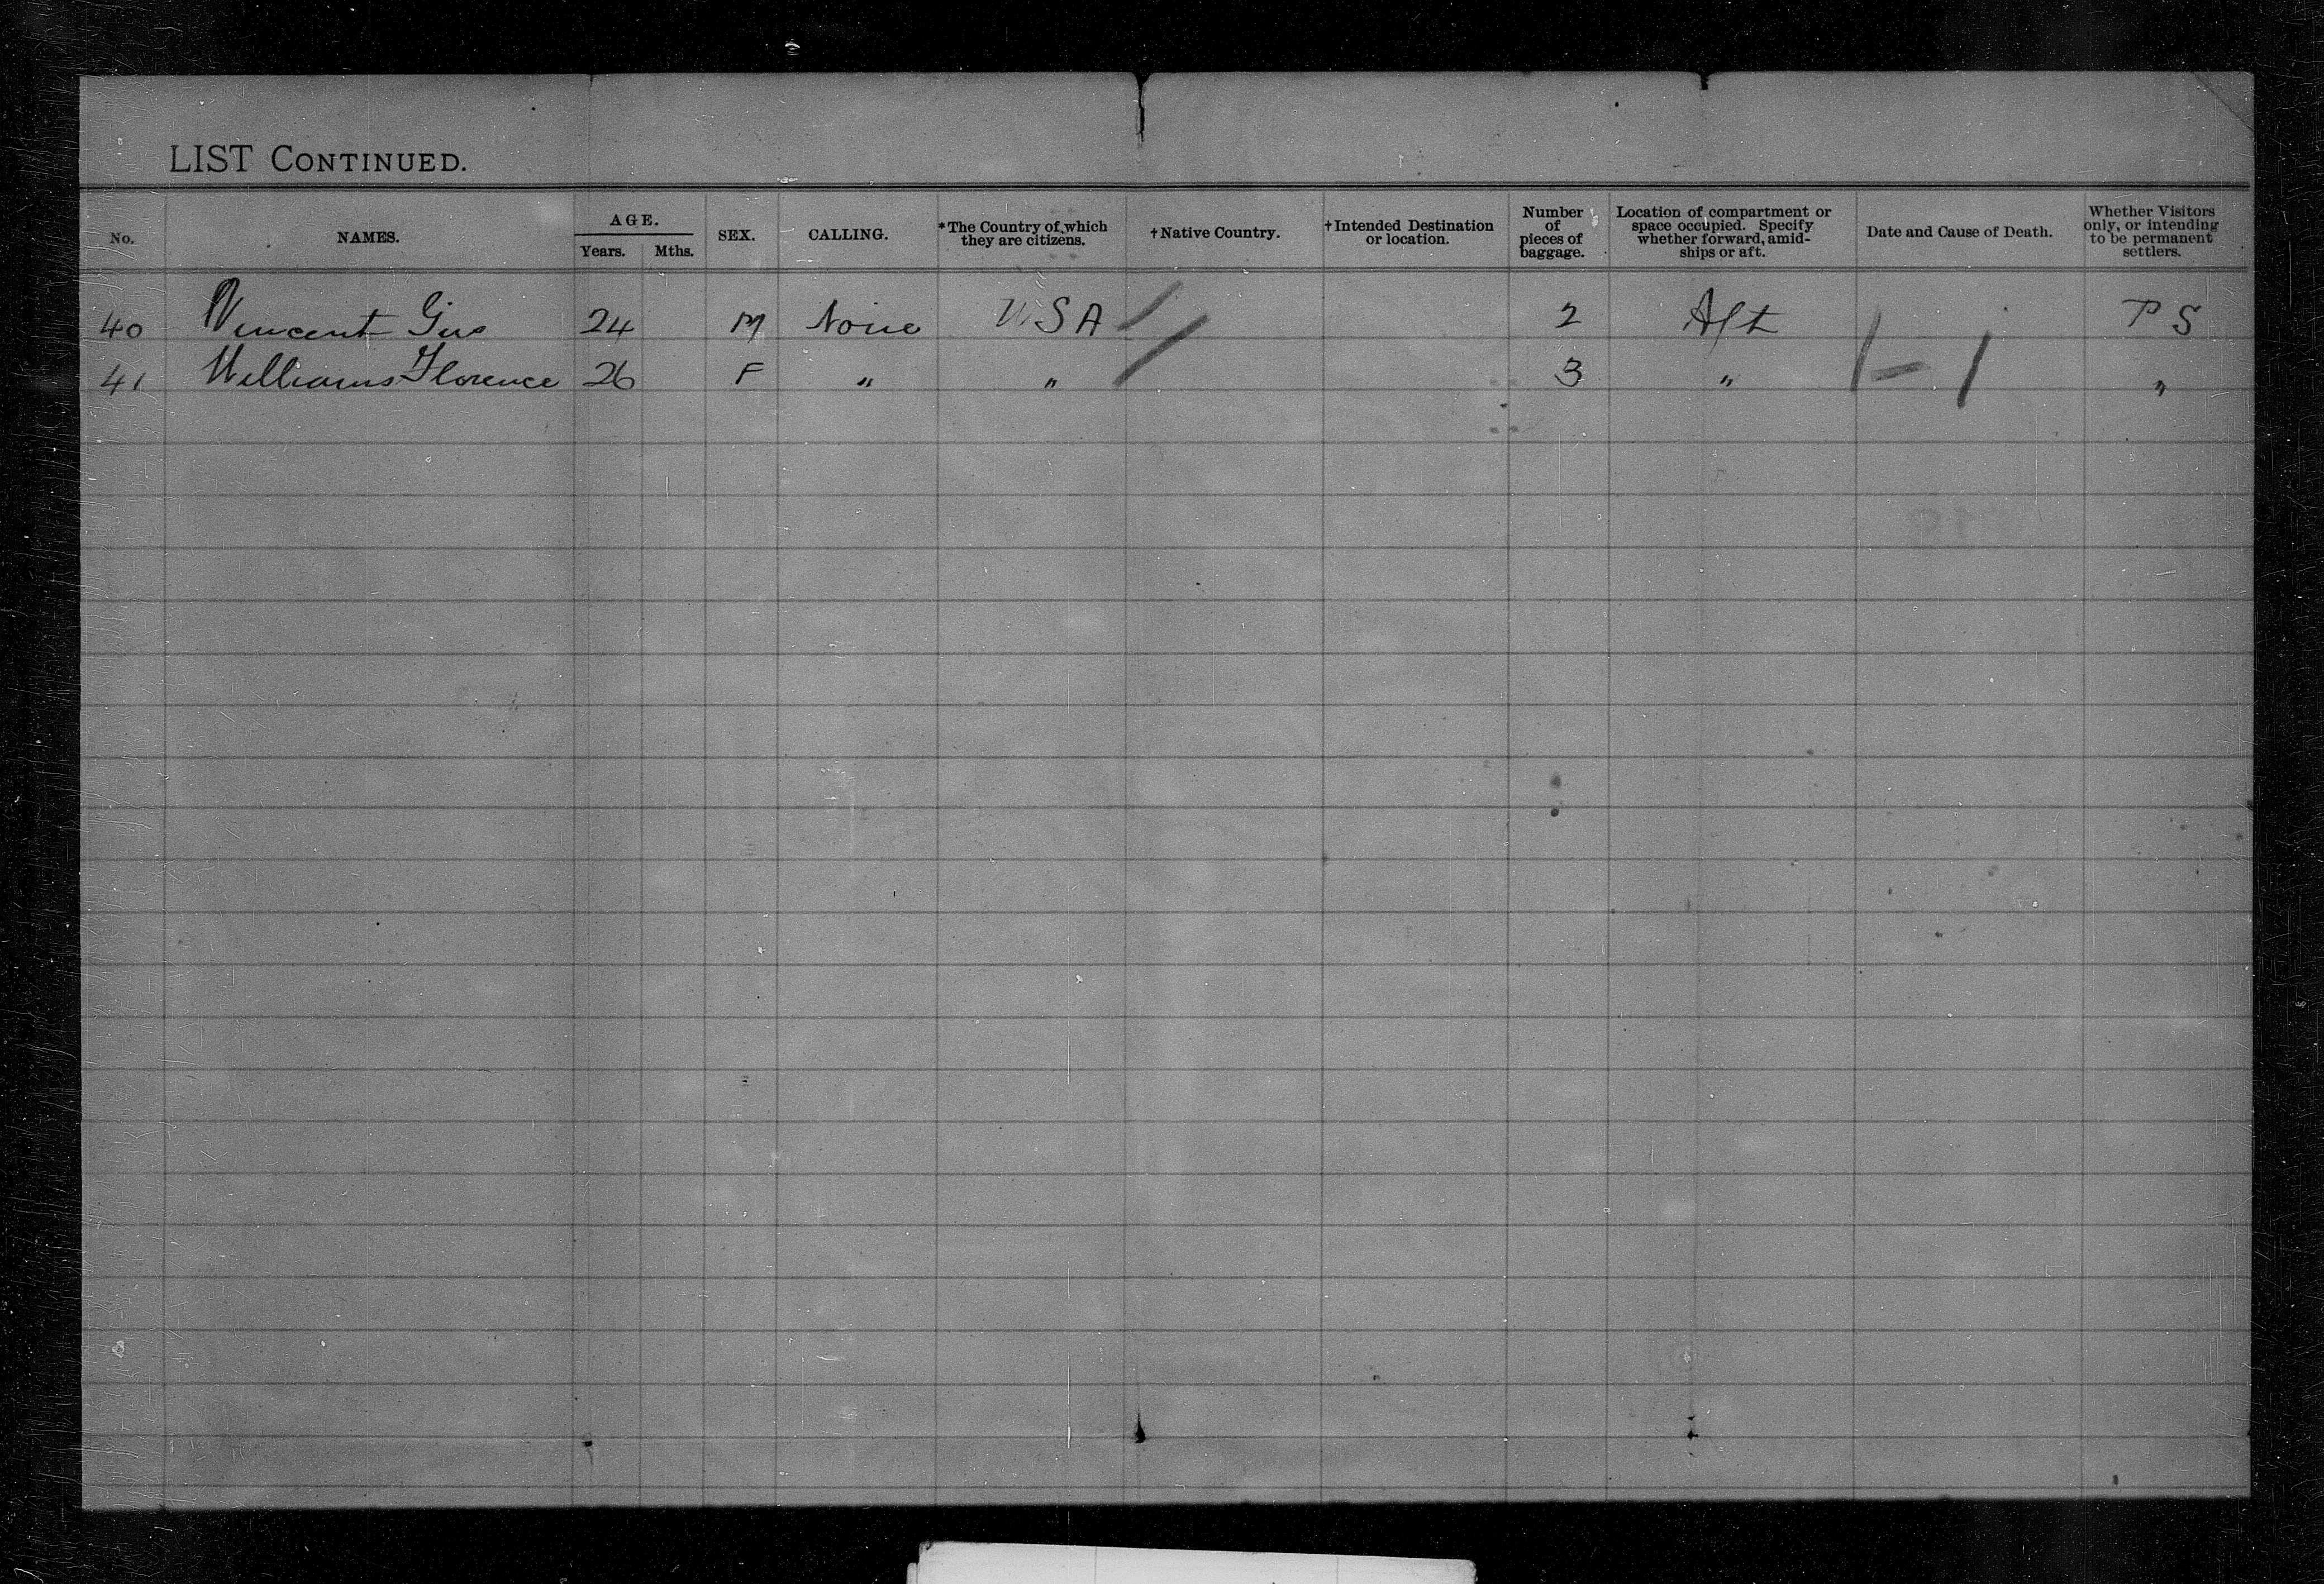 LIST CONTINUED.
No. NAMES. AGE. Years. Mths. SEX. CALLING. *The Country of which they are citizens. †Native Country. †Intended Destination or location. Number of pieces of baggage. Location of compartment or space occupied. Specify whether forward, amid-ships or aft. Date and Cause of Death. Whether Visitors only, or intending to be permanent settlers.
40 Vincent Gus 24 M None USA 2 Aft P S
41 Williams Florence 26 F " " 3 " "
1 – 1